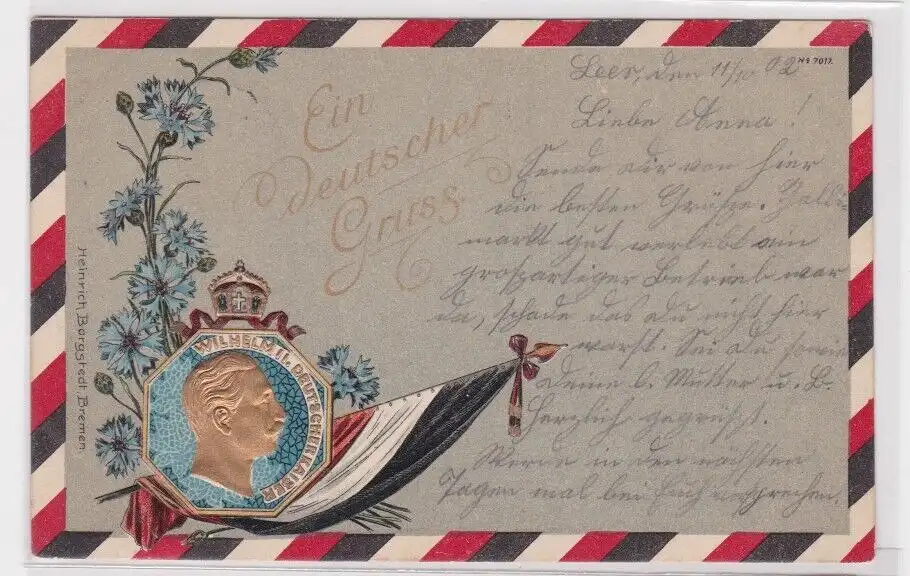 Leer, den 11/10 02
No 7017.
Liebe Anna!
Sende dir von hier
die besten Grüsse. Galli-
markt gut verlebt ein
grossartiger Betrieb war
da, schade das du nicht hier
warst. Sei du, sowie
deine l. Mutter u. B.
herzlich gegrüsst.
Werde in den nächsten
Tagen mal bei Euch vorsprechen.
Ein
deutscher
Gruss.
WILHELM II. DEUTSCHER KAISER
Heinrich Borgstedt. Bremen.